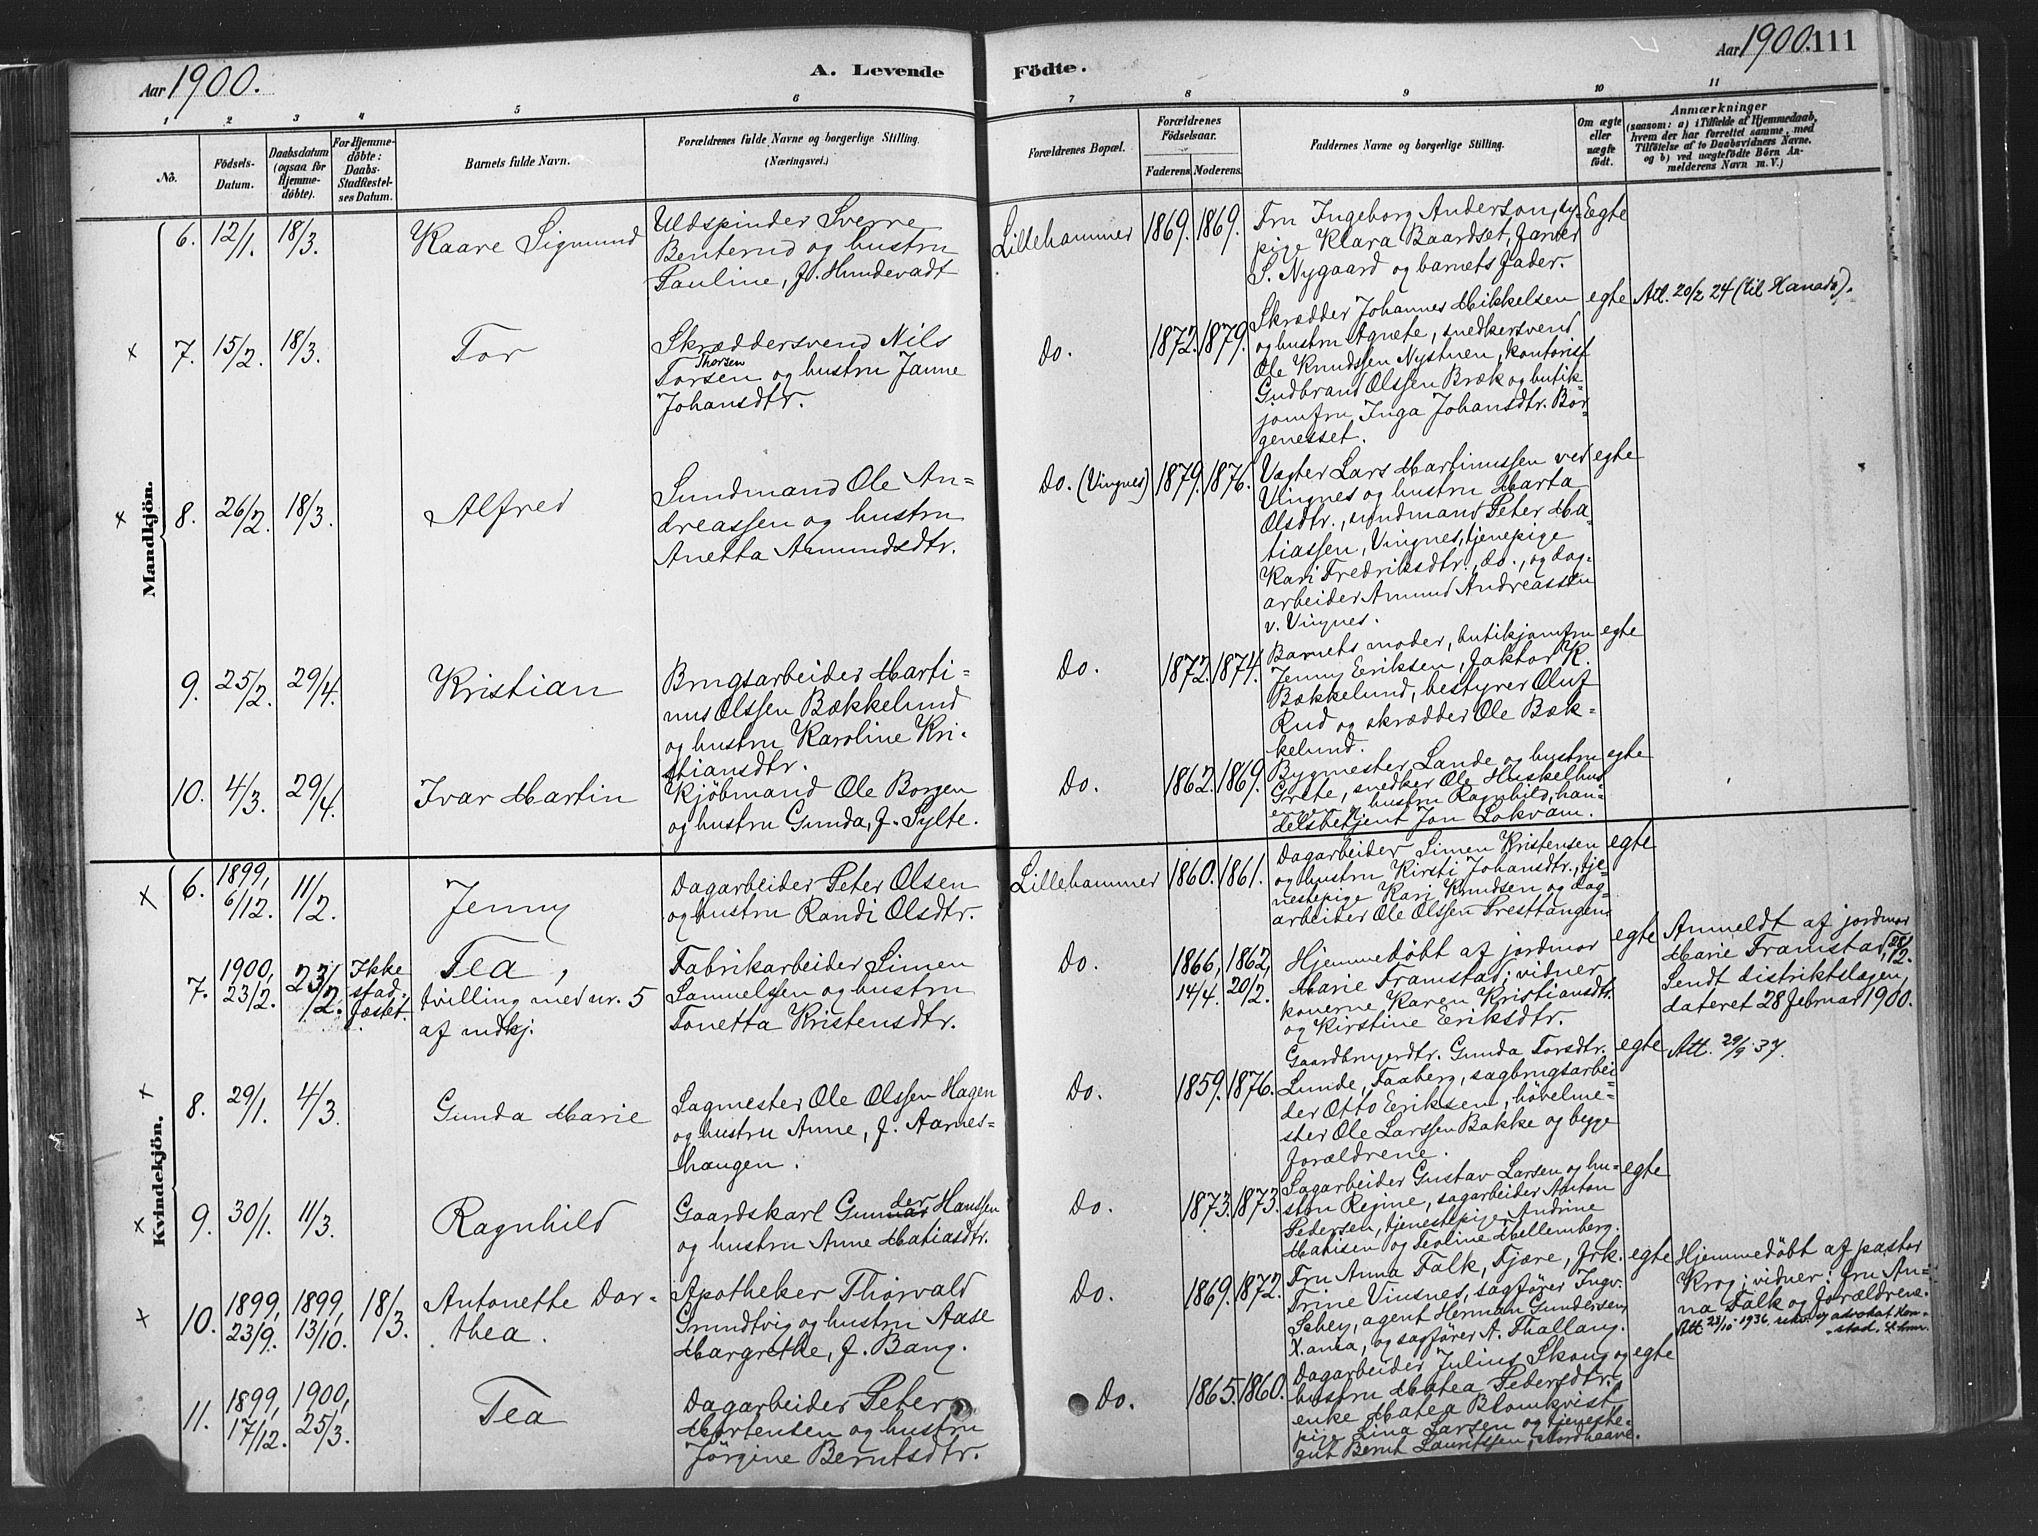 Aar 1900.
A. Levende
Födte.
Aar 1900. 111
1 2 3 4 5 6 7 8 9 10 11
No.
Födsels-
Datum.
Daabsdatum
(ogsaa for
Hjemme-
döbte).
For Hjemme-
döbte:
Daabs-
Stadfæstel-
ses Datum.
Barnets fulde Navn.
Forældrenes fulde Navne og borgerlige Stilling.
(Næringsvei.)
Forældrenes Bopæl.
Forældrenes
Födselsaar.
Faderens. Moderens.
Faddernes Navne og borgerlige Stilling.
Om ægte
eller
uægte
födt.
Anmærkninger
(saasom: a) i Tilfælde af Hjemmedaab,
hvem der har forrettet samme, med
Tilföielse af to Daabsvidners Navne,
og b) ved uægtefödte Börn An-
melderens Navn m. V.)
Mandkjön.
6. 12/1. 18/3.
Kaare Sigmund
Uldspinder Sverre
Benterud og hustru
Pauline, f. Hundevadt
Lillehammer
1869. 1869.
Fru Ingeborg Anderson, sy-
pige Klara Baardset,
S. Nygaard og barnets fader.
Egte
× 7. 15/2. 18/3.
Tor
Skræddersvend Nils
Thorsen
Torsen og hustru Janne
Johansdtr.
Do.
1872. 1879.
Skrædder Johannes Mikkelsen
og hustru Agnete, snedkersvend
Ole Knudssen Nystuen, kontorist
Gudbrand Olssen Bræk og butik-
jomfru Inga Johansdtr. Bor-
genesset.
egte
Att. 20/2 24 (til Kanada).
× 8. 26/2. 18/3.
Alfred
Sundmand Ole An-
dreassen og hustru
Anetta Amundsdtr.
Do. (Vingnes)
1879. 1876.
Vogter Lars Martinussen ved
Vingnes og hustru Marta
Olsdtr., sundmand Peter Ma-
tiassen, Vingnes, tjenepige
Kari Fredriksdtr., do., og dag-
arbeider Amund Andreassen
v. Vingnes.
egte
9. 25/2. 29/4.
Kristian
Brugsarbeider Marti-
nus Olssen Bækkelund
og hustru Karoline Kri-
stiansdtr.
Do.
1872. 1874.
Barnets moder, butikjomfru
Jenny Eriksen, faktor K.
Bækkelund, bestyrer Oluf
Rud og skrædder Ole Bæk-
kelund.
egte
10. 4/3. 29/4.
Ivar Martin
Kjöbmand Ole Borgen
og hustru Gunda, f. Sylte.
Do.
1862. 1869.
Bygmester Lande og hustru
Grete, snedker Ole Huskelhus
hustru Ragnhild, han-
delsbetjent Jon Lokvam.
egte
Kvindekjön.
× 6. 1899, 6/12. 11/2.
Jenny
Dagarbeider Peter Olsen
og hustru Randi Olsdtr.
Lillehammer
1860. 1861.
Dagarbeider Simen Kristensen
og hustru Kirsti Johansdtr., tje-
nestepige Kari Knudsen og dag-
arbeider Ole Olssen Presttangen.
egte
7. 1900, 23/2. 23/2.
Ikke
stad-
fæstet.
Tea,
tvilling med nr. 5
af mdkj.
Fabrikarbeider Simen
Samuelsen og hustru
Tonetta Kristensdtr.
Do.
1866, 14/4. 1862, 20/2.
Hjemmedöbt af jordmor
Marie Framstad; vidner
konerne Karen Kristiansdtr.
og Kirstine Eriksdtr.
egte
Anmeldt af jordmor
Marie Framstad, 28/2.
Sendt distriktslægen,
dateret 28 februar 1900.
× 8. 29/1. 4/3.
Gunda Marie
Sagmester Ole Olssen Hagen
og hustru Anne, f. Aarnes-
haugen.
Do.
1859. 1876.
Gaardbrugerdtr. Gunda Torsdtr.
Lunde, Faaberg, sagbrugsarbei-
der Otto Eriksen, hövelme-
ster Ole Larssen Bakke og begge
forældrene.
egte
Att. 29/9 37.
× 9. 30/1. 11/3.
Ragnhild
Gaardskarl Gunder Hanssen
og hustru Anne Matiasdtr.
Do.
1873. 1873.
Sagarbeider Gustav Larsen og hu-
stru Regine, sagarbeider Anton
Pedersen, tjenestepige Andrine
Madisen og Teoline Mellemberg.
egte
× 10. 1899, 23/9. 1899, 13/10. 18/3.
Antonette Dor-
thea.
Apotheker Thorvald
Grundtvig og hustru Aase
Margrethe, f. Bang.
Do.
1869. 1872.
Fru Anna Falk, Fjære, frk.
Trine Vinsnes, sagförer Ingv.
Schey, agent Herman Gundersen,
X.ania, og sagförer A. Thallaug.
egte
Hjemmedöbt af pastor
Krog; vidner: fru An-
na Falk og forældrene.
Att 23/10 1936 advokat Kon-
stad. L.hmr.
11. 1899, 17/12. 1900, 25/3.
Tea
Dagarbeider Peter
Mortensen og hustru
Jörgine Berntsdtr.
Do.
1865. 1860.
Dagarbeider Julius Skoug og
hustru Matea Pedersdtr.,
enke Matea Blomkvist
pige Lina Larsen og tjeneste-
gut Bernt Lauritssen, Nordheave.
egte